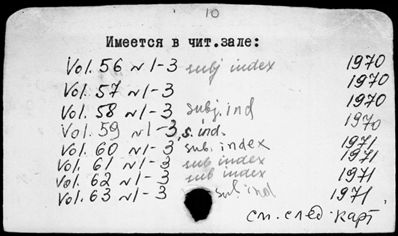 10
Имеется в чит.зале:
Vol. 56 N 1-3 subj index 1970
Vol. 57 N 1-3 1970
Vol. 58 N 1-3 subj. ind 1970
Vol. 59 N 1-3, s. ind. 1970
Vol. 60 N 1-3 sub. index 1971
Vol. 61 N 1-3 sub index 1971
Vol. 62 N 1-3 sub index 1971
Vol. 63 N 1-3 sub ind 1971
см. след. карт